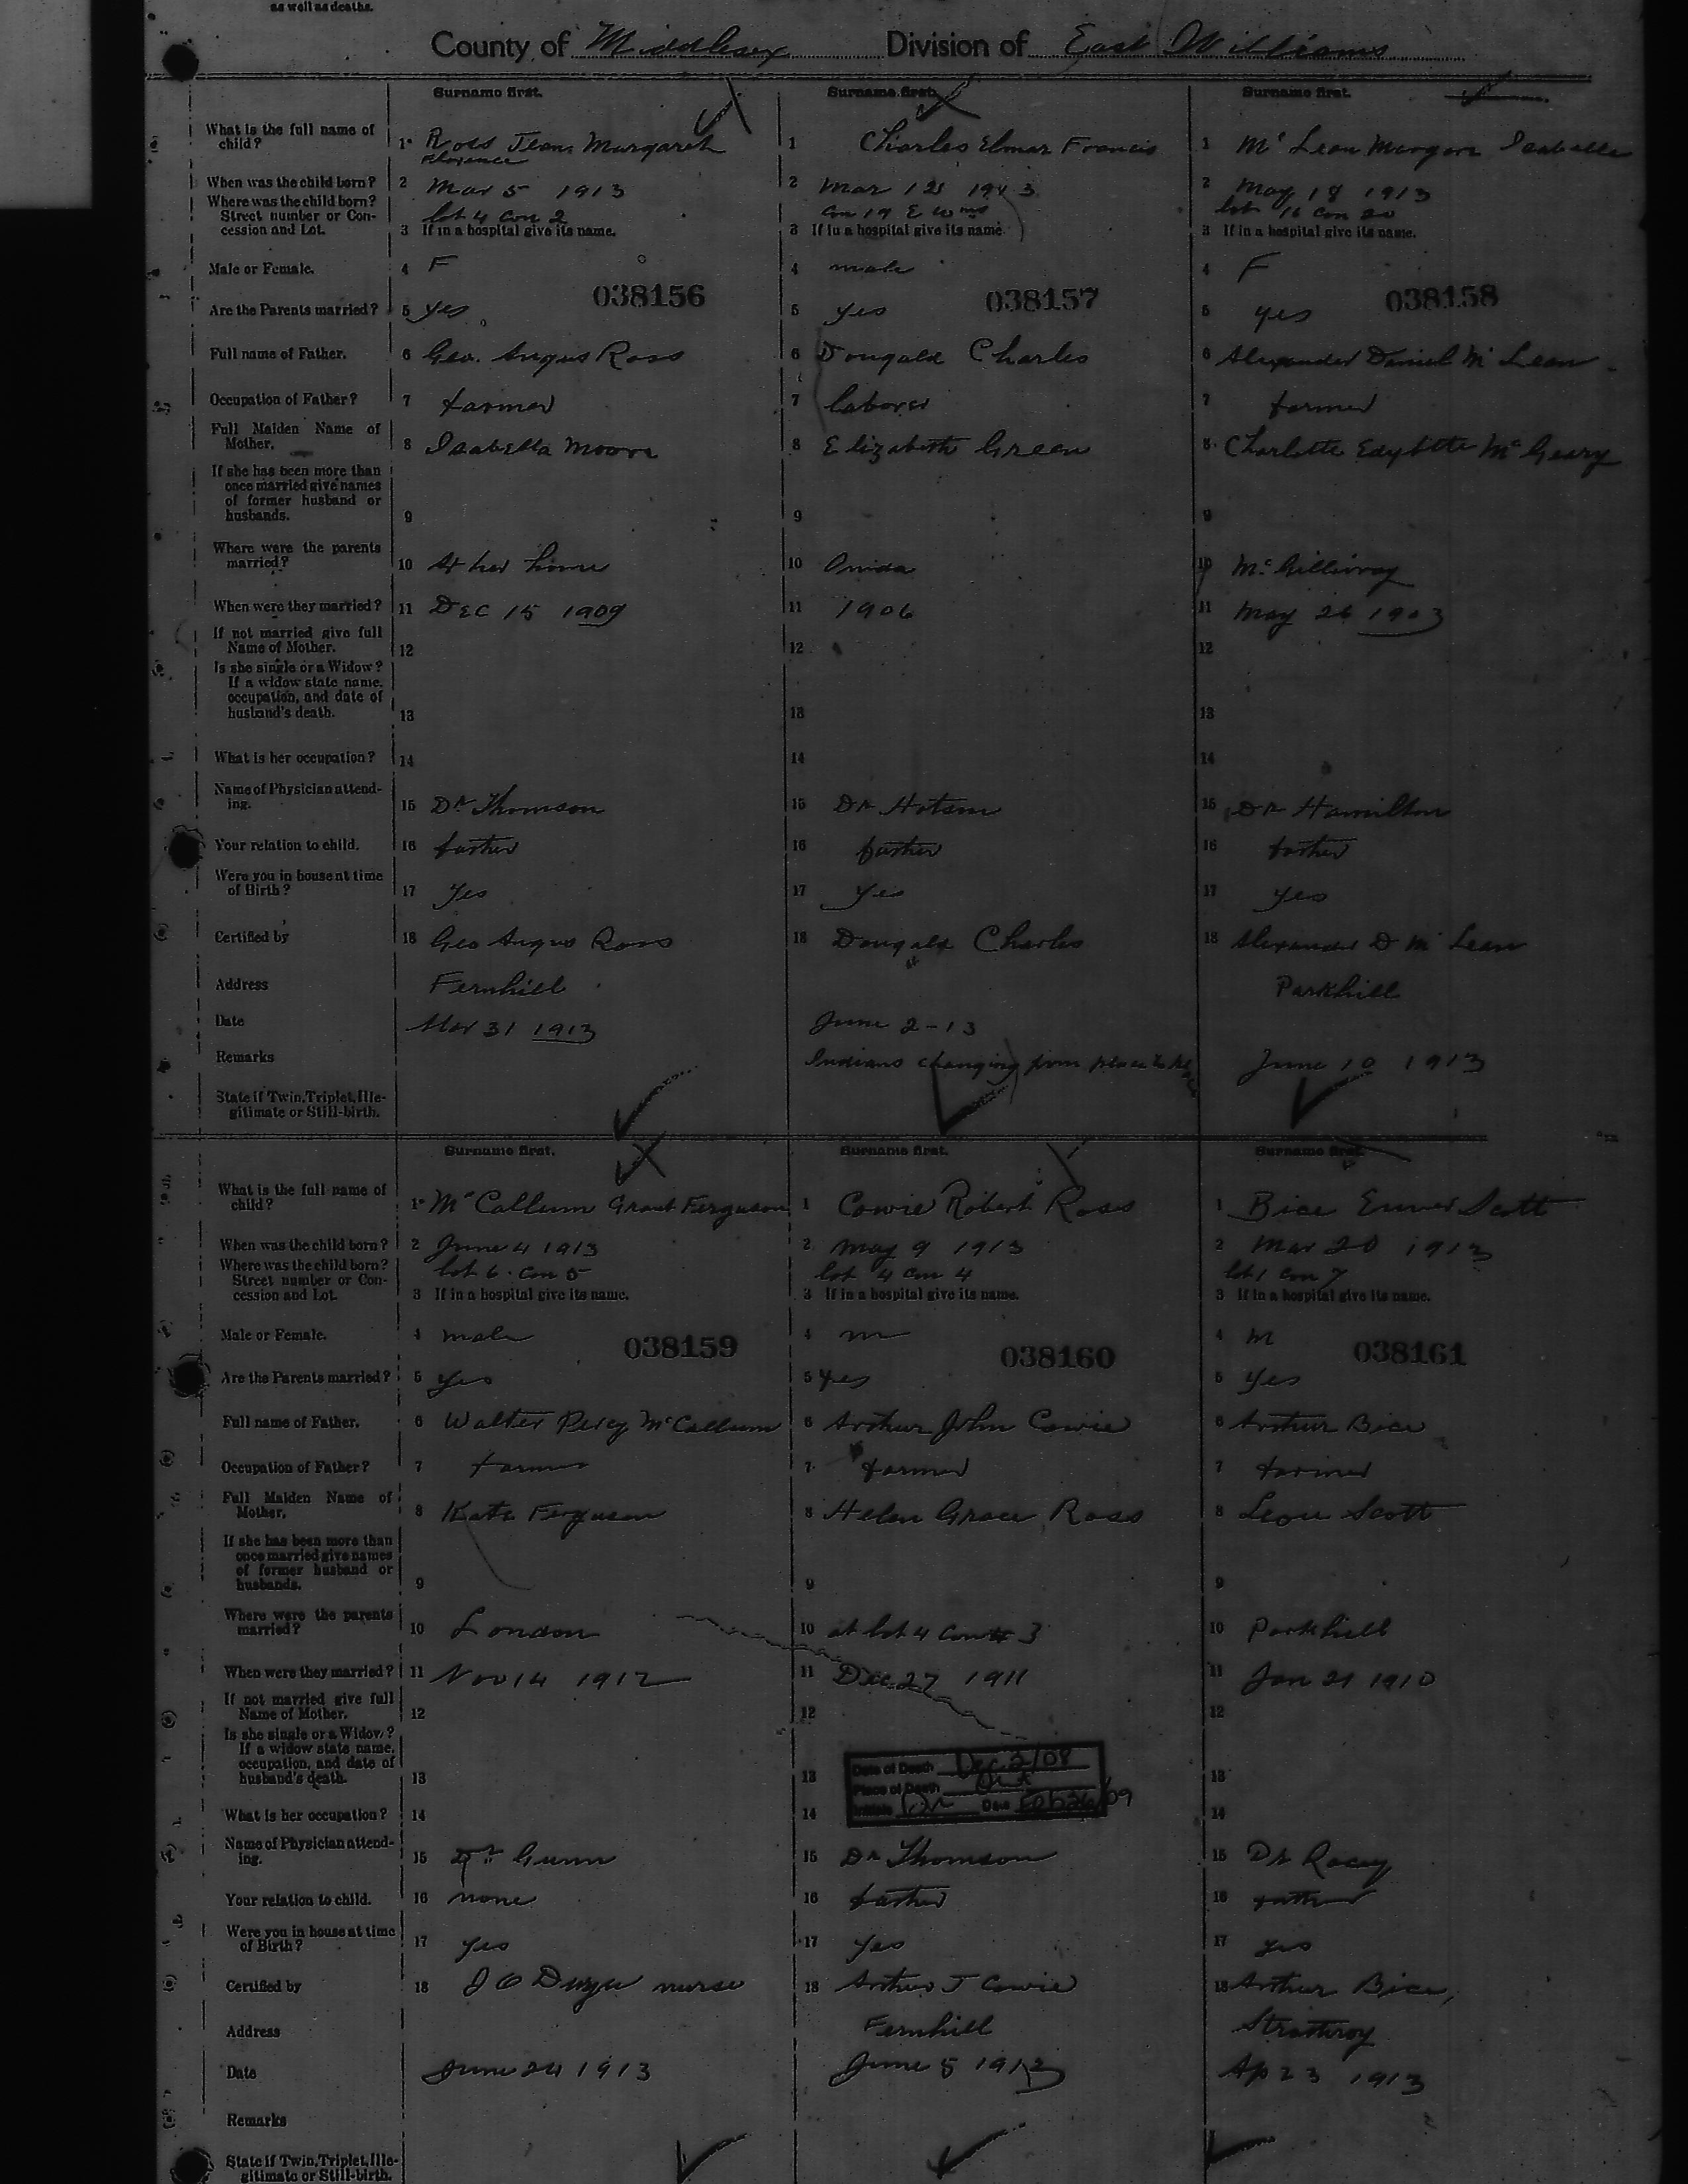 as well as deaths.
County of Middlesex Division of East Williams
Surname first. Surname first. Surname first.
What is the full name of child? 1 Ross Jean Margaret Florence 1 Charles Elmar Francis 1 McLean Margare Isabella
When was the child born? 2 Mar 5 1913 2 Mar 12 1913 2 May 18 1913
Where was the child born? Street number or Concession and Lot. lot 4 con 2 con 19 E Wms lot 16 con 20
3 If in a hospital give its name. 3 If in a hospital give its name. 3 If in a hospital give its name.
Male or Female. 4 F 4 male 4 F
038156 038157 038158
Are the Parents married? 5 yes 5 yes 5 yes
Full name of Father. 6 Geo. Angus Ross 6 Dougald Charles 6 Alexander Daniel McLean
Occupation of Father? 7 farmer 7 laborer 7 farmer
Full Maiden Name of Mother. 8 Isabella Moore 8 Elizabeth Green 8 Charlotte McGeary
If she has been more than once married give names of former husband or husbands. 9 9 9
Where were the parents married? 10 At her home 10 Onida 10 McGillivray
When were they married? 11 Dec 15 1909 11 1906 11 May 26 1903
If not married give full Name of Mother. 12 12 12
Is she single or a Widow? If a widow state name, occupation, and date of husband's death. 13 13 13
What is her occupation? 14 14 14
Name of Physician attending. 15 Dr Thomson 15 Dr Hotson 15 Dr Hamilton
Your relation to child. 16 father 16 father 16 father
Were you in house at time of Birth? 17 Yes 17 Yes 17 Yes
Certified by 18 Geo Angus Ross 18 Dougald Charles 18 Alexander D McLean
Address Fernhill Parkhill
Date Mar 31 1913 June 2-13
Remarks Indians changing from place to place June 10 1913
State if Twin, Triplet, Illegitimate or Still-birth.
Surname first. Surname first. Surname first.
What is the full name of child? 1 McCallum Grant Ferguson 1 Cowie Robert Ross 1 Bice Scott
When was the child born? 2 June 4 1913 2 May 9 1913 2 Mar 20 1913
Where was the child born? Street number or Concession and Lot. lot 6 con 5 lot 4 con 4 lot 1 con 7
3 If in a hospital give its name. 3 If in a hospital give its name. 3 If in a hospital give its name.
Male or Female. 4 male 4 m 4 M
038159 038160 038161
Are the Parents married? 5 yes 5 yes 5 yes
Full name of Father. 6 Walter Percy McCallum 6 Arthur John Cowie 6 Arthur Bice
Occupation of Father? 7 farmer 7 farmer 7 farmer
Full Maiden Name of Mother. 8 Kate Ferguson 8 Helen Grace Ross 8 Scott
If she has been more than once married give names of former husband or husbands. 9 9 9
Where were the parents married? 10 London 10 at lot 4 con 3 10 Parkhill
When were they married? 11 Nov 14 1912 11 Dec. 27 1911 11 Jan 21 1910
If not married give full Name of Mother. 12 12 12
Is she single or a Widow? If a widow state name, occupation, and date of husband's death. 13 13 13
Date of Death Dec. 2/08
Place of Death Ont
Initials Date Feb 26/09
What is her occupation? 14 14 14
Name of Physician attending. 15 Dr. Gunn 15 Dr Thomson 15 Dr Racey
Your relation to child. 16 none 16 father 16 father
Were you in house at time of Birth? 17 yes 17 yes 17 yes
Certified by 18 nurse 18 Arthur J Cowie 18 Arthur Bice,
Address Fernhill Strathroy
Date June 24 1913 June 5 1913 Ap 23 1913
Remarks
State if Twin, Triplet, Illegitimate or Still-birth.